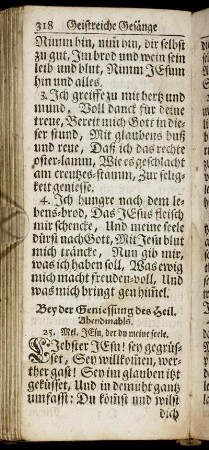 318 Geistreiche Gesänge
Nimm hin, nim̄ hin, dir selbst
zu gut, Im brod und wein sein
leib und blut, Nimm JEsum
hin und alles.
3. Ich greiffe zu mit hertz und
mund, Voll danck für deine
treue, Bereit mich Gott in die-
ser stund, Mit glaubens buß
und reue, Daß ich das rechte
oster-lamm, Wie es geschlacht
am creutzes-stamm, Zur selig-
keit geniesse.
4. Ich hungre nach dem le-
bens-brod, Das JEsus fleisch
mir schencke, Und meine seele
dürst nach Gott, Mit Jesu blut
mich träncke, Nun gib mir,
was ich haben soll, Was ewig
mich macht freuden-voll, Und
was mich bringt gen him̄el.
Bey der Geniessung des Heil.
Abendmahls.
25. Mel. JEsu, der du meine seele.
LIebster JEsu! sey gegrüs-
set, Sey willkom̄en, wer-
ther gast! Sey im glauben itzt
geküsset, Und in demuht gantz
umfasst: Du kom̄st und wilst
dich